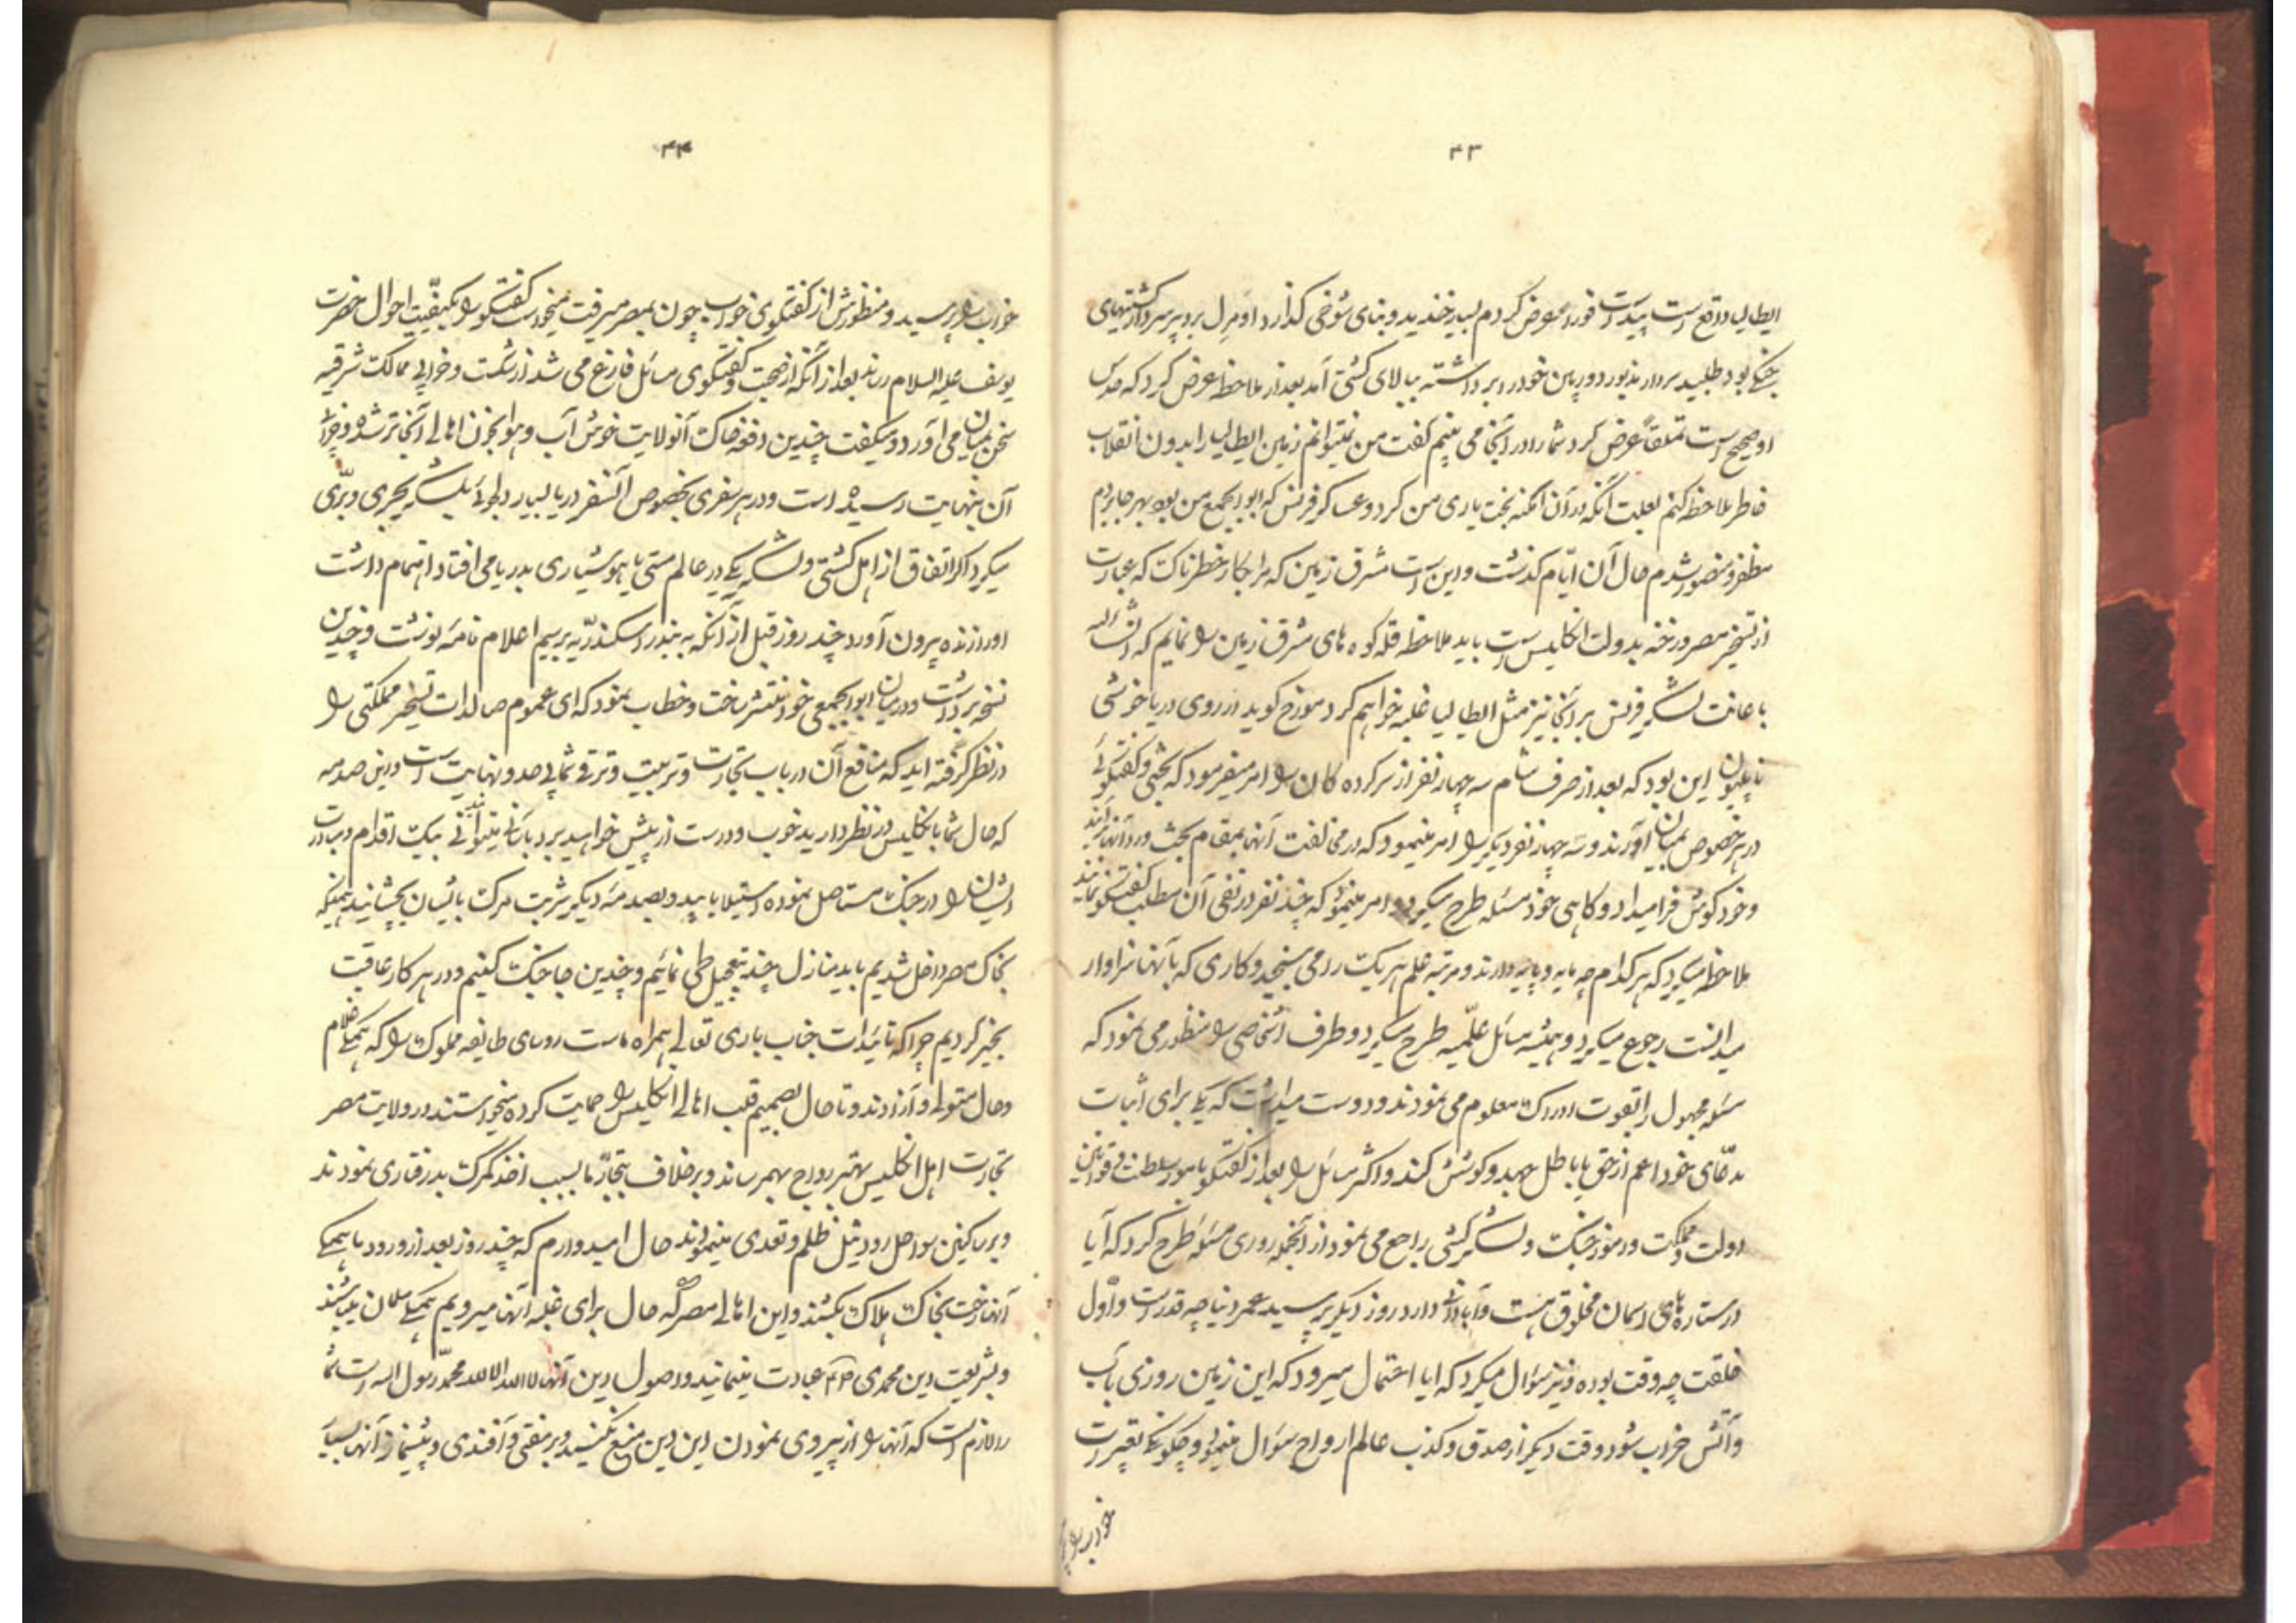 ۴۳
ایطالیا واقع است پیداست فوراً معروض کردم بسیار خندید و بنای شوخی گذارد اومرل برویر سردار کشتیهای
جنگی بود طلبید سردار مذبور دوربین خود را برداشته ببالای کشتی آمد بعد از ملاحظه عرض کرد که حدس
او صحیح است تملقاً عرض کرد شما را در آنجا می بینم گفت من نمیتوانم زمین ایطالیا را بدون انقلاب
خاطر ملاحظه کنم بعلت آنکه در آن امکنه بخت یاری من کرد و عساکر فرنس که ابوابجمع من بود بهر جا بردم
مظفر و منصور شدم حال آن ایّام گذشت و این است مشرق زمین که مرا بکار خطرناک که عبارت
از تسخیر مصر و رخنه بدولت انگلیس است باید ملاحظه قله کوه های مشرق زمین را نمایم که انشاءالله
باعانت لشکر فرنس بر آنجا نیز مثل ایطالیا غلبه خواهم کرد مورخ گوید از روی دریا خوشی
ناپلیون این بود که بعد از صرف شام سه چهار نفر از سرکرده گان را امر میفرمود که بحثی و گفتگوئی
در هر خصوص بمیان آورند و سه چهار نفر دیگر را امر مینمود که در مخالفت آنها بمقام بحث و رد آنها برآیند
و خود گوش فرا میداد و گاهی خود مسئله طرح میکرد و امر مینمود که چند نفر در نفی آن مطلب گفتگو نمایند
ملاحظه میکرد که هر کدام چه مایه و پایه دارند و مرتبه علم هر یک را می سنجید و کاری که بآنها سزاوار
میدانست رجوع میکرد و همیشه مسائل علمیه طرح میکرد و طرف اشخاصی را منظور می نمود که
مسئله مجهول را بقوت ادراک معلوم می نمودند و دوست میداشت که یکی برای اثبات
مدعای خود اعم از حق یا باطل جهد و کوشش کند و اکثر مسائل را بعد از گفتگو بامور سلطنت و قوانین
دولت و مملکت و رموز جنگ و لشکر کشی راجع می نمود از آنجمله روزی مسئله طرح کرد که آیا
در ستاره های اسمان مخلوق هست و آبادانی دارد روز دیگر پرسید عمر دنیا چه قدر است و اول
خلقت چه وقت بوده و نیز سؤال میکرد که ایا احتمال میرود که این زمین روزی بآب
و آتش خراب شود وقت دیگر از صدق و کذب عالم ارواح سؤال مینمود و چگونگی تعبیرات
خواب را
۴۴
خواب را پرسید و منظورش از گفتگوی خواب چون بمصر میرفت میخواست گفتگو را بکیفیّت احوال حضرت
یوسف علیه السلام رساند بعد از آنکه از صحبت و گفتگوی مسائل فارغ می شد از شکست و خرابی ممالک شرقیه
سخن بمیان می آورد و میگفت چندین دفعه خاک آنولایت خوش آب و هوا بخون اهالی آنجا تر شده و خرابی
آن بنهایت رسیده است و در هر سفری بخصوص آنسفر دریا بسیار دلجوئی بلشکر بحری و برّی
میکرد اگر اتفاق از اهل کشتی و لشکر یکی در عالم مستی یا هوشیاری بدریا می افتاد اهتمام داشت
او را زنده بیرون آورد چند روز قبل از آنکه به بندر اسکندریه برسیم اعلام نامه نوشت و چندین
نسخه برداشت و در میان ابوابجمعی خود منتشر ساخت و خطاب نمود که ای عموم صالدات تسخیر مملکتی را
در نظر گرفته اید که منافع آن در باب تجارت و تربیت و ترقی شما بی حد و نهایت است و این صدمه
که حال شما بانگلیس در نظر دارید خوب و درست از پیش خواهید برد بآسانی میتوانید بیک اقدام و مبادرت
ایشان را در جنگ مستاصل نموده استیلا یابید و بصدمه دیگر شربت مرگ بایشان بچشانید همینکه
بخاک مصر داخل شدیم باید منازل چند بتعجیل طی نمائیم و چندین جا جنگ کنیم و در هر کار عاقبت
بخیر گردیم چرا که تائیدات جناب باری تعالی همراه ماست روسای طایفه مملوک را که همگی غلام
و حال متولی و آزادند و تا حال بصمیم قلب اهالی انگلیس را حمایت کرده میخواستند در ولایت مصر
تجارت اهل انگلیس بهتر رواج بهمرساند و برخلاف بتجار ما بسبب اخذ گمرک بدرفتاری نمودند
و بر ساکنین سواحل رود نیل ظلم و تعدی مینمودند حال امیدوارم که چند روز بعد از ورود ما همگی
آنها رخت بخاک هلاک بکشند و این اهالی مصر که حال برای غلبه آنها میرویم همگی مسلمان میباشند
و بشریعت دین محمدی عبادت مینمایند و اصول دین آنها لا اله الا الله محمد رسول الله است شما
را لازم است که آنها را از پیروی نمودن این دین منع نکنید و بر مفتی و آفندی و پیشنماز آنها بسیار